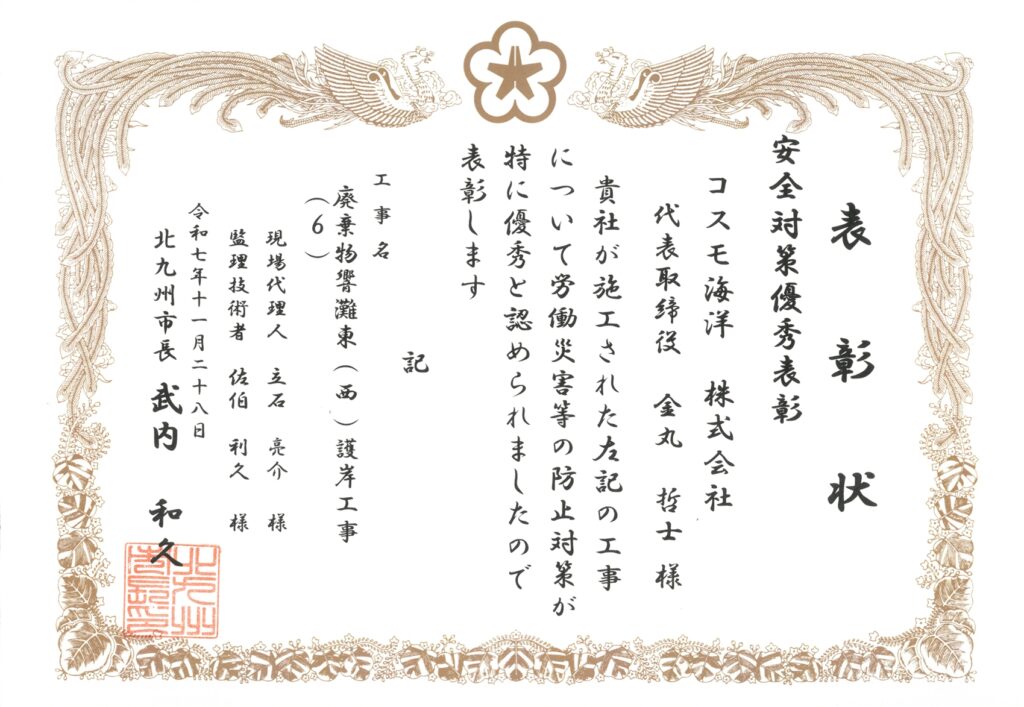 表彰状
安全対策優秀表彰
コスモ海洋 株式会社
代表取締役 金丸 哲士 様
貴社が施工された左記の工事
について労働災害等の防止対策が
特に優秀と認められましたので
表彰します
記
工事名
廃棄物響灘東(西)護岸工事
(6)
現場代理人 立石 亮介 様
監理技術者 佐伯 利久 様
令和七年十一月二十八日
北九州市長 武内 和久
北九州市長之印